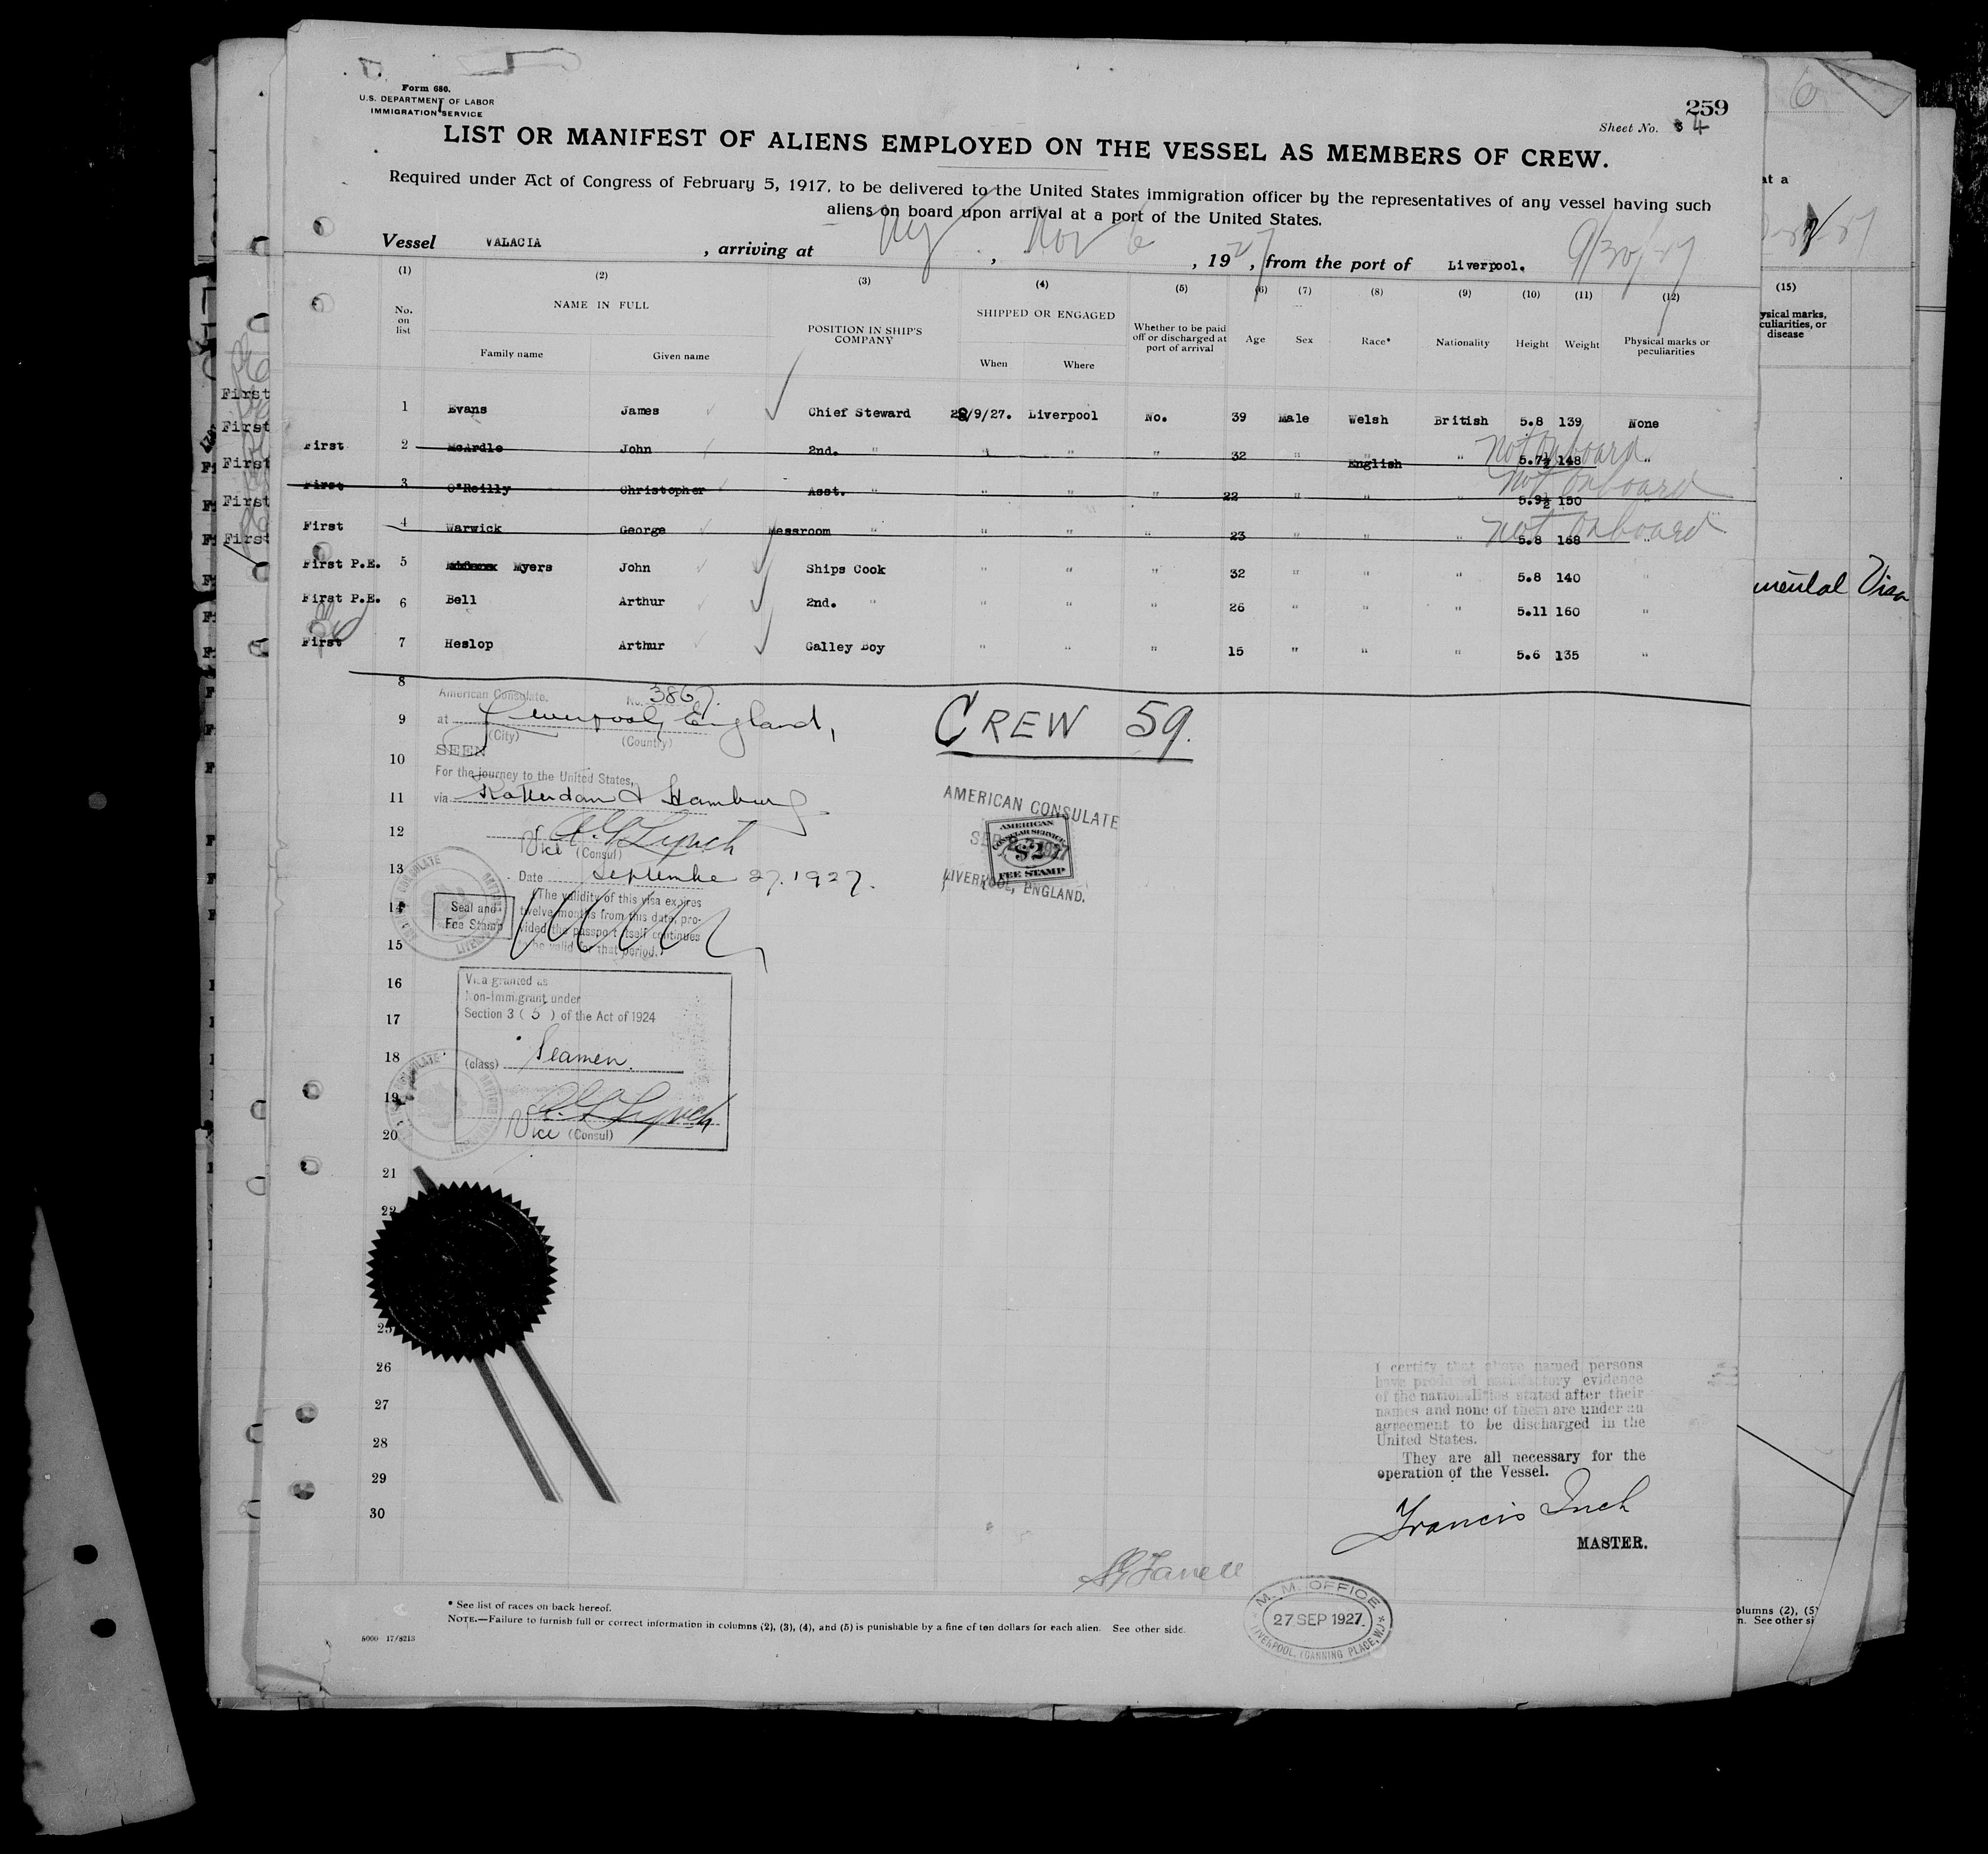 Form 680.
U.S. DEPARTMENT OF LABOR
IMMIGRATION SERVICE
259
Sheet No. 4
LIST OR MANIFEST OF ALIENS EMPLOYED ON THE VESSEL AS MEMBERS OF CREW.
Required under Act of Congress of February 5, 1917, to be delivered to the United States immigration officer by the representatives of any vessel having such
aliens on board upon arrival at a port of the United States.
Vessel VALACIA, arriving at Ny, Nov 6, 1927, from the port of Liverpool. 9/30/27
(1) (2) (3) (4) (5) (6) (7) (8) (9) (10) (11) (12)
No. on list NAME IN FULL POSITION IN SHIP'S COMPANY SHIPPED OR ENGAGED Whether to be paid off or discharged at port of arrival Age Sex Race* Nationality Height Weight Physical marks or peculiarities
Family name Given name When Where
1 Evans James Chief Steward 28/9/27. Liverpool No. 39 Male Welsh British 5.8 139 None
First 2 McArdle John 2nd. " " " " 32 " English " 5.7½ 148 " Not on board
First 3 O'Reilly Christopher Asst. " " " " 22 " " " 5.9½ 150 Not on board
First 4 Warwick George Messroom " " " " 23 " " " 5.8 168 " not on board
First P.E. 5 Myers John Ships Cook " " " 32 " " " 5.8 140 "
First P.E. 6 Bell Arthur 2nd. " " " " 26 " " " 5.11 160 "
First 7 Heslop Arthur Galley Boy " " " 15 " " " 5.6 135 "
8
American Consulate. No. 3867.
9
at Liverpool, England,
(City) (Country)
CREW 59.
10
SEEN
For the journey to the United States,
11
via Rotterdam & Hamburg
12
Vice (Consul)
13
Date September 27. 1927.
AMERICAN CONSULATE
SEP 27 1927
LIVERPOOL, ENGLAND.
AMERICAN
CONSULAR SERVICE
$2
FEE STAMP
14
Seal and
Fee Stamp
(The validity of this visa expires
twelve months from this date, pro-
vided the passport itself continues
to be valid for that period.)
15
16
Visa granted as
Non-Immigrant under
17
Section 3 ( 5 ) of the Act of 1924
18
(class) Seamen.
19
20
Vice (Consul)
21
22
25
26
27
28
29
30
I certify that above named persons
have produced satisfactory evidence
of the nationalities stated after their
names and none of them are under an
agreement to be discharged in the
United States.
They are all necessary for the
operation of the Vessel.
Francis Inch
MASTER.
M. M. OFFICE
27 SEP 1927.
LIVERPOOL, (CANNING PLACE, W.)
* See list of races on back hereof.
NOTE.—Failure to furnish full or correct information in columns (2), (3), (4), and (5) is punishable by a fine of ten dollars for each alien. See other side.
First
First
First
First
First
6
at a
(15)
ysical marks,
culiarities, or
disease
mental Visa
olumns (2), (5)
n. See other si